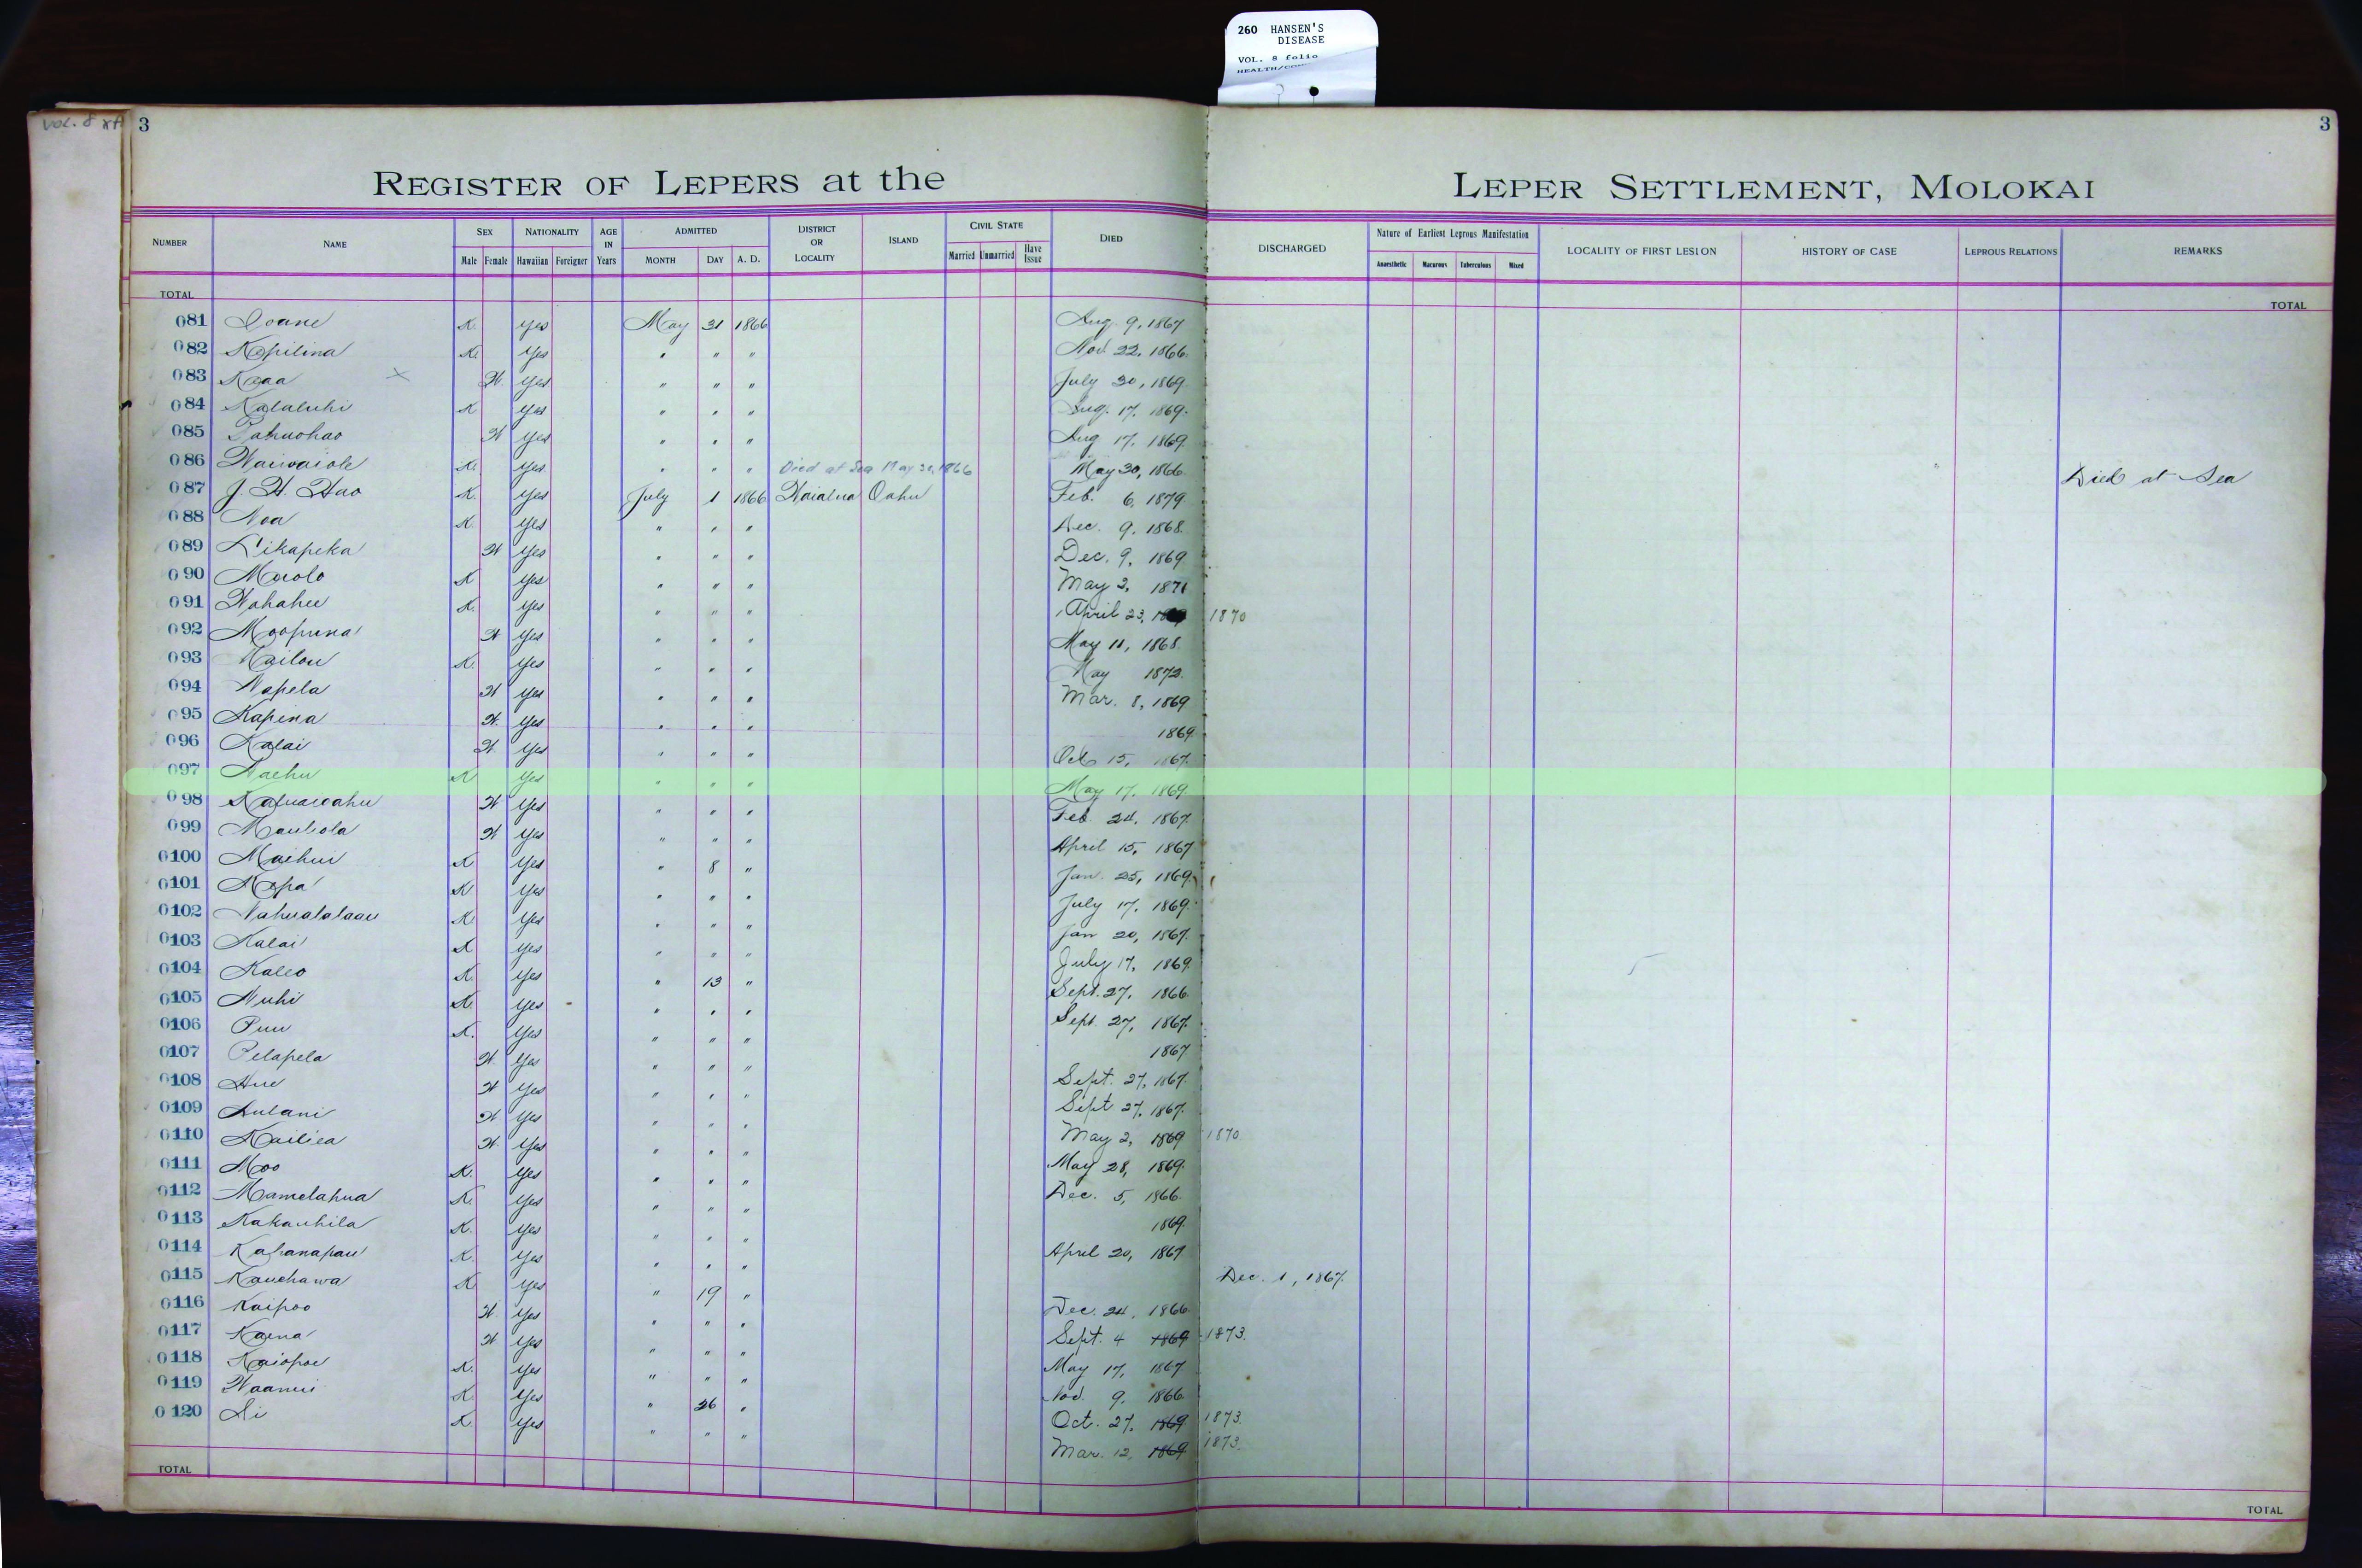 260 HANSEN'S
DISEASE
VOL. 8 folio
VOL. 8
3
3
REGISTER OF LEPERS at the LEPER SETTLEMENT, MOLOKAI
NUMBER NAME SEX Male Female NATIONALITY Hawaiian Foreigner AGE IN Years ADMITTED MONTH DAY A. D. DISTRICT OR LOCALITY ISLAND CIVIL STATE Married Unmarried Have Issue DIED DISCHARGED Nature of Earliest Leprous Manifestation Anaesthetic Macurous Tuberculous Mixed LOCALITY OF FIRST LESION HISTORY OF CASE LEPROUS RELATIONS REMARKS
TOTAL TOTAL
081 Ioane K. Yes May 31 1866 Aug. 9, 1867
082 Kapilina K. Yes " " " Nov. 22, 1866.
083 Kaaa x W. Yes " " " July 30, 1869.
084 Kalaluhi K Yes " " " Aug. 17, 1869.
085 Pahuohao W Yes " " " Aug 17, 1869.
086 Waiwaiole K. Yes " " " Died at Sea May 30, 1866 May 30, 1866. Died at Sea
087 J. H. Hao K. Yes July 1 1866 Waialua Oahu Feb. 6, 1879
088 Noa K. Yes " " " Dec. 9, 1868.
089 Likapeka W Yes " " " Dec. 9, 1869
090 Maolo K Yes " " " May 2, 1871
091 Wahahee K. Yes " " " April 23, 1870
092 Moopuna W Yes " " " May 11, 1868.
093 Kailou K. Yes " " " May 1872.
094 Napela W Yes " " " Mar. 8, 1869
095 Kapina W. Yes " " " 1869.
096 Kalai W Yes " " " Oct 15, 1867.
097 Naehu K Yes " " " May 17, 1869.
098 W Yes " " " Feb. 24, 1867.
099 Mauliola W Yes " " " April 15, 1867
0100 Maihui K Yes " 8 " Jan. 25, 1869.
0101 Napa K Yes " " " July 17, 1869.
0102 Nahualalaau K. Yes " " " Jan 20, 1867.
0103 Kalai K Yes " " " July 17, 1869.
0104 Kaleo K. Yes " 13 " Sept. 27, 1866.
0105 Nuhi K. Yes " " " Sept. 27, 1867.
0106 Puu K. Yes " " " 1867
0107 Pelapela W Yes " " " Sept. 27, 1867.
0108 Hue W Yes " " " Sept 27, 1867.
0109 Aulani W Yes " " " May 2, 1869 1870.
0110 Kailiea W. Yes " " " May 28, 1869.
0111 Moo K. Yes " " " Dec. 5, 1866.
0112 Mamelahua K. Yes " " " 1869.
0113 Kakauhila K. Yes " " " April 20, 1867
0114 Kahanapau K. Yes " " " Dec. 1, 1867.
0115 Kauehawa K Yes " 19 " Dec. 24, 1866.
0116 Kaipoo W. Yes " " " Sept. 4 1869 1873.
0117 Kaena W Yes " " " May 17, 1867
0118 Kaiopoe K. Yes " " " Nov. 9, 1866.
0119 Waanui K Yes " 26 " Oct. 27, 1869 1873.
0120 Ai K. Yes " " " Mar. 12, 1869 1873.
TOTAL TOTAL